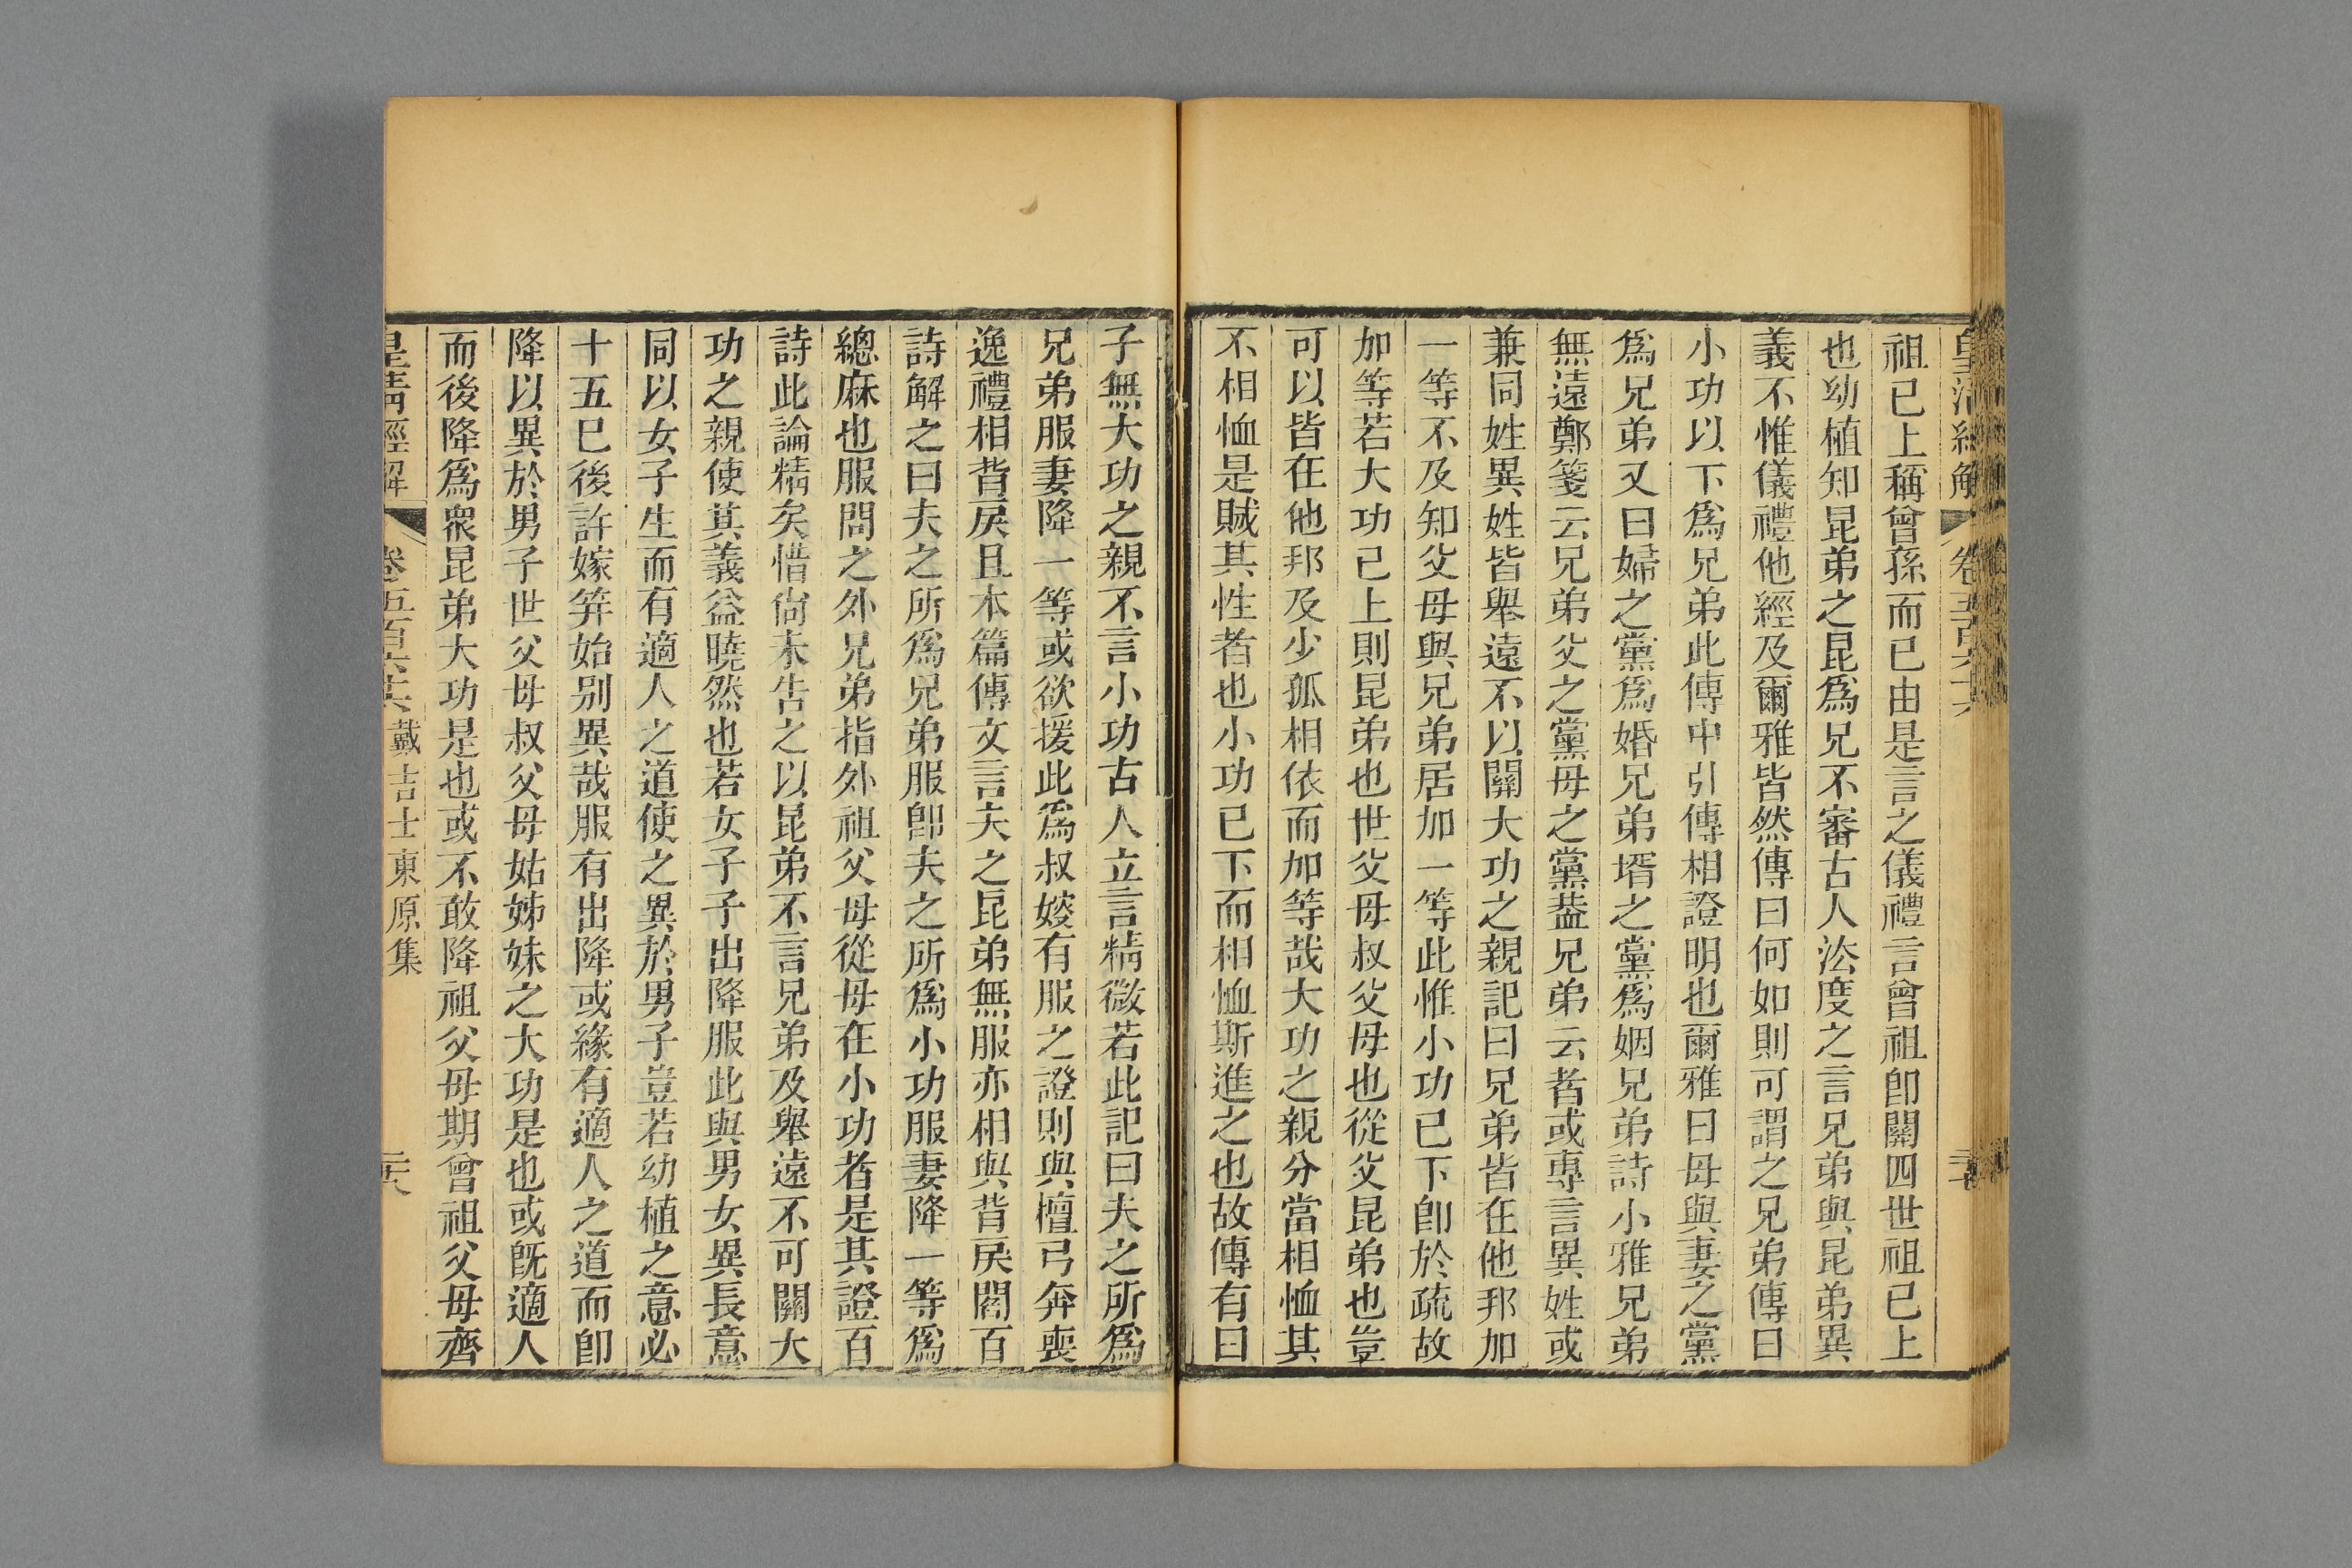 皇清經解 卷五百六十六
祖已上稱曾孫而已由是言之儀禮言曾祖卽關四世祖已上
也幼植知昆弟之昆爲兄不審古人㳒度之言兄弟與昆弟異
義不惟儀禮他經及爾雅皆然傳曰何如則可謂之兄弟傳曰
小功以下爲兄弟此傳中引傳相證明也爾雅曰母與妻之黨
爲兄弟又曰婦之黨爲婚兄弟壻之黨爲姻兄弟詩小雅兄弟
無遠鄭箋云兄弟父之黨母之黨葢兄弟云者或專言異姓或
兼同姓異姓皆舉遠不以關大功之親記曰兄弟皆在他邦加
一等不及知父母與兄弟居加一等此惟小功已下卽於疏故
加等若大功已上則昆弟也世父母叔父母也從父昆弟也豈
可以皆在他邦及少孤相依而加等哉大功之親分當相恤其
不相恤是賊其性者也小功已下而相恤斯進之也故傳有曰
子無大功之親不言小功古人立言精微若此記曰夫之所爲
兄弟服妻降一等或欲援此爲叔嫂有服之證則與檀弓奔喪
逸禮相背戾且本篇傳文言夫之昆弟無服亦相與背戾閻百
詩解之曰夫之所爲兄弟服卽夫之所爲小功服妻降一等爲
緦麻也服問之外兄弟指外祖父母從母在小功者是其證百
詩此論精矣惜尙未吿之以昆弟不言兄弟及舉遠不可關大
功之親使其義益曉然也若女子子出降服此與男女異長意
同以女子生而有適人之道使之異於男子豈若幼植之意必
十五已後許嫁笄始別異哉服有出降或緣有適人之道而卽
降以異於男子世父母叔父母姑姊妹之大功是也或旣適人
而後降爲衆昆弟大功是也或不敢降祖父母期曾祖父母齊
皇清經解 卷五百六十六 戴吉士東原集 六